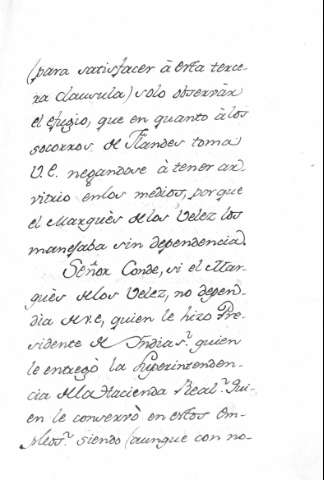 (para satisfacer à esta terce-
ra clausula) solo observàr
el efugio, que en quanto à los
socorros de Flandes toma
V.E. negandose à tener ar-
vitrio en los medios, porque
el Marquès de los Velez los
manejaba sin dependencia.
Señor Conde, si el Mar-
quès de los Velez, no depen-
dia de V.E, quien le hizo Pre-
sidente de Indias? quien
le entregò la Superintenden-
cia de la Hacienda Real? Qui-
en le conserrò en estos Em-
pleos? siendo (aunque con no-